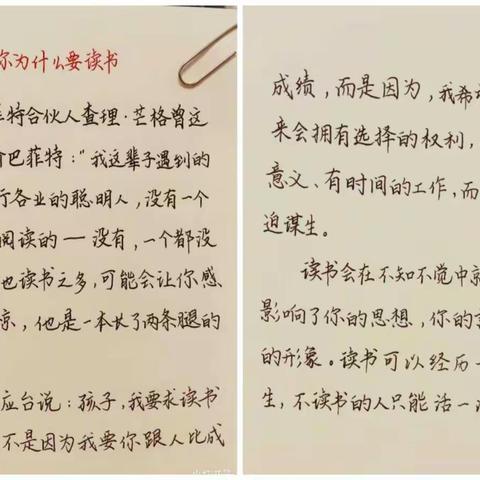 你为什么要读书
菲特合伙人查理·芒格曾这
俞巴菲特："我这辈子遇到的
行各业的聪明人，没有一个
阅读的——没有，一个都没
也读书之多，可能会让你感
京，他是一本长了两条腿的
应台说：孩子，我要求读书
不是因为我要你跟人比成
成绩，而是因为，我希
来会拥有选择的权利，
意义、有时间的工作，而
迫谋生。
读书会在不知不觉中
影响了你的思想，你的
的形象。读书可以经历一
生，不读书的人只能活一